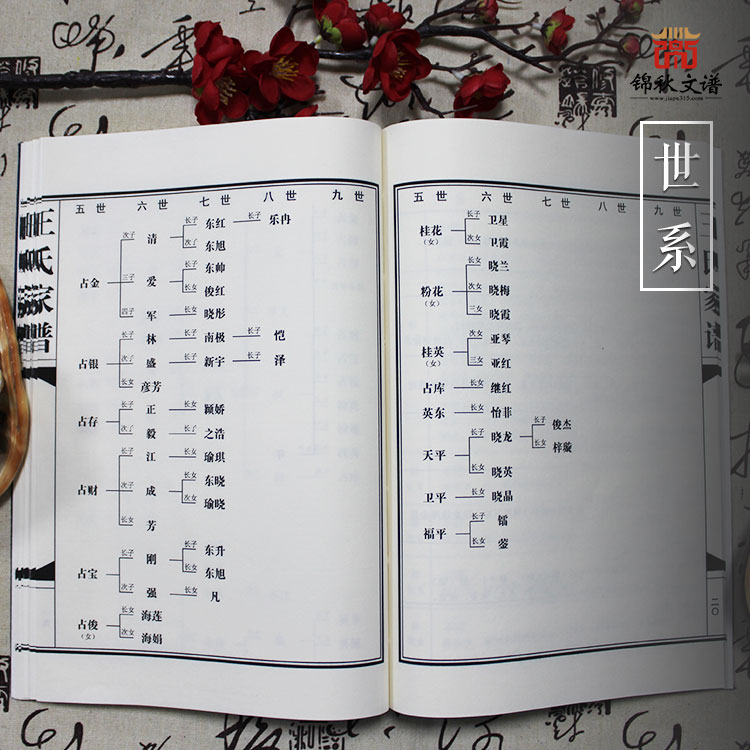 锦秋文谱
www.jiapu315.com
世系
王氏家谱
五世 六世 七世 八世 九世
占金
次子 清 长子 东红 长子 乐冉
次子 东旭
三子 爱 长子 东帅
长女 俊红
四子 军 长女 晓彤
占银
长子 林 长子 南极 长子 恺
次子 盛 长子 新宇 长子 泽
长女 彦芳
占存
长子 正 长女 颖娇
次子 毅 长子 之浩
占财
长子 江 长女 瑜琪
次子 成 长女 东晓
次女 瑜晓
长女 芳
占宝
长子 刚 长子 东升
长女 东旭
次子 强 长女 凡
占俊
(女)
长女 海莲
次女 海娟
五世 六世 七世 八世 九世
桂花
(女)
长子 卫星
长女 卫霞
粉花
(女)
长女 晓兰
次女 晓梅
三女 晓霞
桂英
(女)
次女 亚琴
三女 亚红
占库 长女 继红
英东 长女 怡菲
天平
长子 晓龙 长子 俊杰
长女 梓璇
长女 晓英
卫平 长女 晓晶
福平
长子 镭
长女 蓥
王氏家谱
二〇